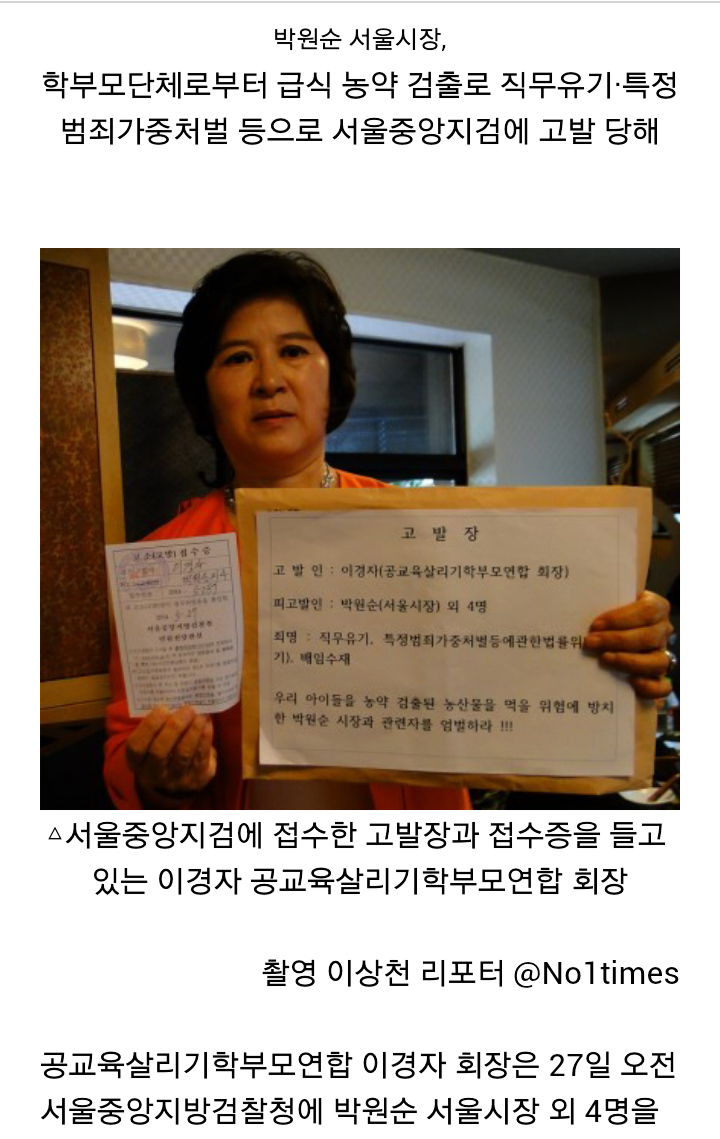 박원순 서울시장,
학부모단체로부터 급식 농약 검출로 직무유기·특정
범죄가중처벌 등으로 서울중앙지검에 고발 당해
고 소(고발) 접 수 증
이경자
박원순외4
2014
서울중앙지방검찰청
민원전담관실
고 발 장
고 발 인 : 이경자(공교육살리기학부모연합 회장)
피고발인 : 박원순(서울시장) 외 4명
죄명 : 직무유기, 특정범죄가중처벌등에관한법률위
기), 배임수재
우리 아이들을 농약 검출된 농산물을 먹을 위험에 방치
한 박원순 시장과 관련자를 엄벌하라 !!!
△서울중앙지검에 접수한 고발장과 접수증을 들고
있는 이경자 공교육살리기학부모연합 회장
촬영 이상천 리포터 @No1times
공교육살리기학부모연합 이경자 회장은 27일 오전
서울중앙지방검찰청에 박원순 서울시장 외 4명을